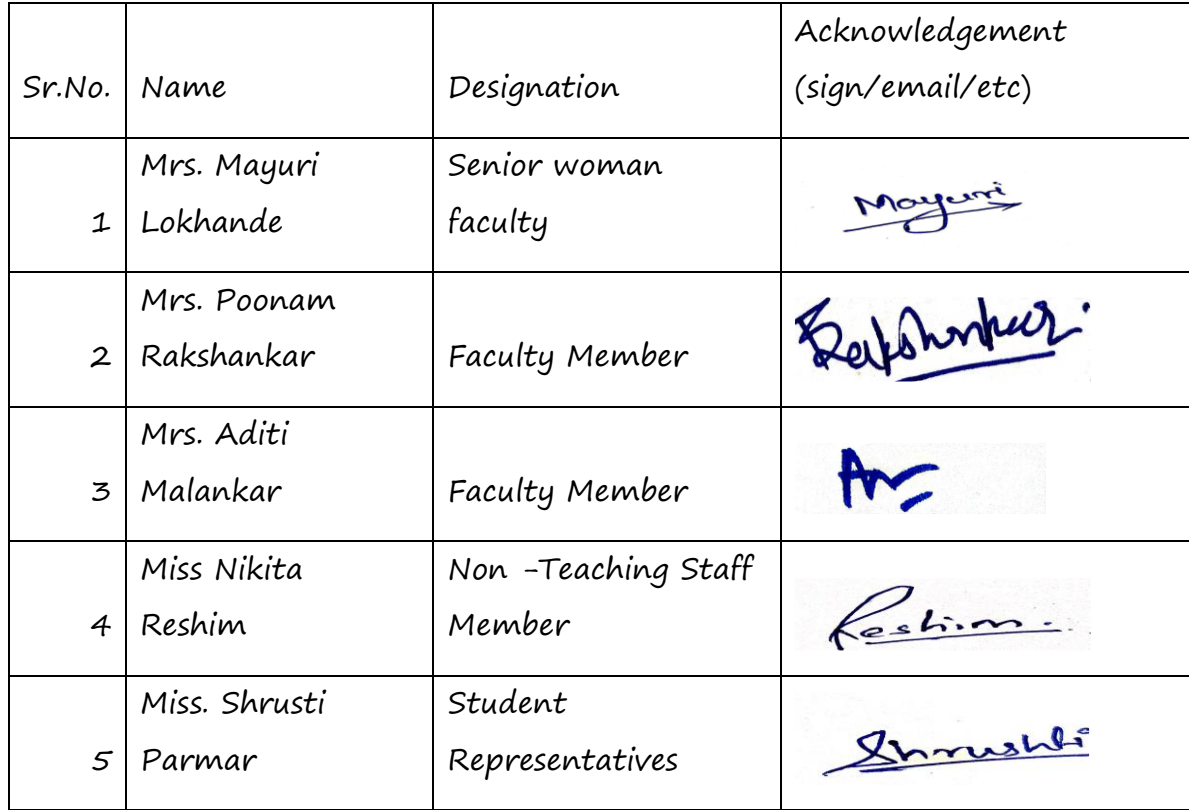 Sr.No. Name Designation Acknowledgement
(sign/email/etc)
1 Mrs. Mayuri
Lokhande Senior woman
faculty Mayuri
2 Mrs. Poonam
Rakshankar Faculty Member Rakshankar
3 Mrs. Aditi
Malankar Faculty Member
4 Miss Nikita
Reshim Non -Teaching Staff
Member Reshim
5 Miss. Shrusti
Parmar Student
Representatives Shrushti